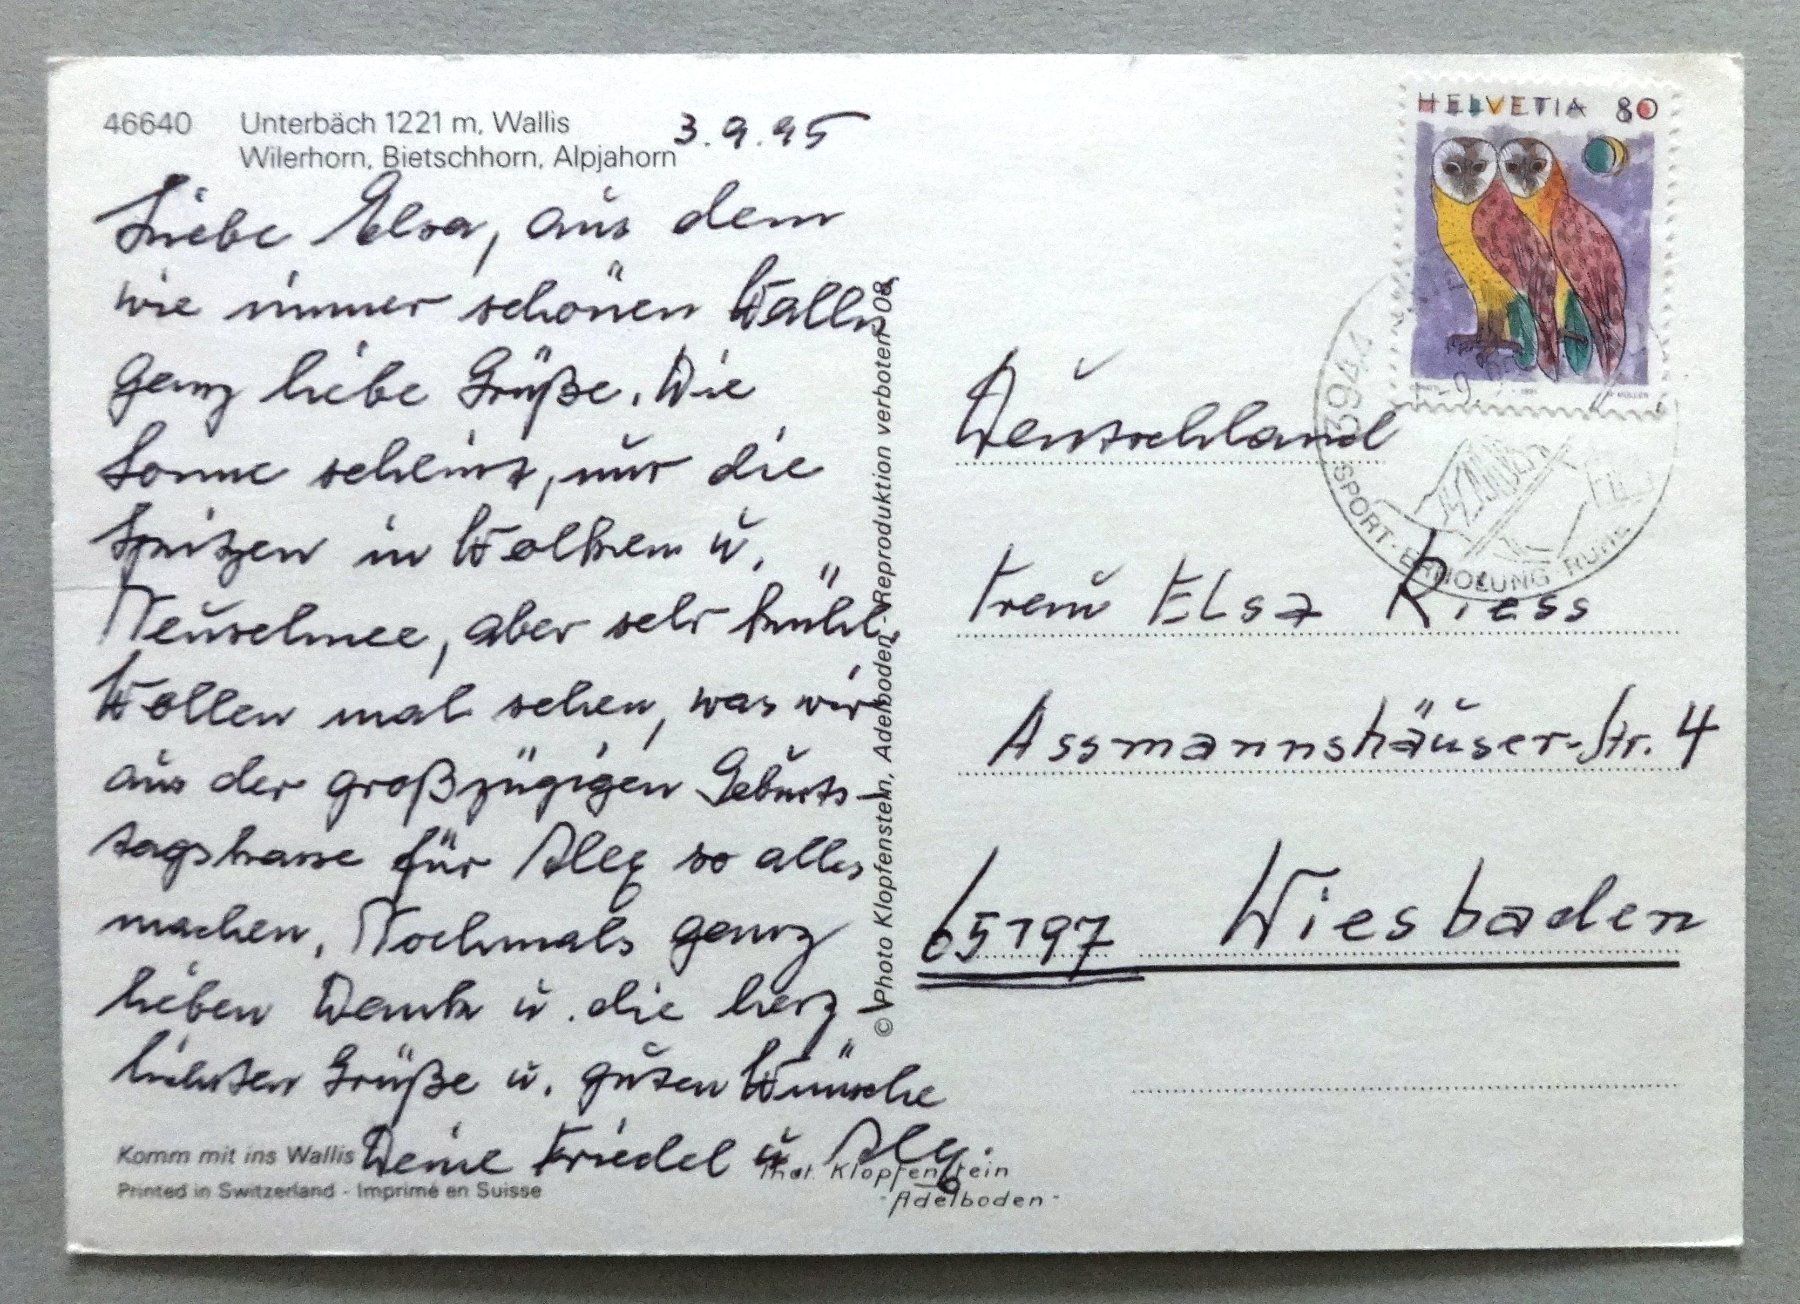 46640 Unterbäch 1221 m, Wallis
Wilerhorn, Bietschhorn, Alpjahorn
3.9.95
Liebe Elsa, aus dem
wie immer schönen Wallis
ganz liebe Grüße. Die
Sonne scheint, nur die
Spitzen in Wolken u.
Neuschnee, aber sehr kühl.
Wollen mal sehen, was wir
aus der großzügigen Geburts-
tagskasse für Alex so alles
machen. Nochmals ganz
lieben Dank u. die herz-
lichsten Grüße u. guten Wünsche
Deine Friedel u. Alex.
Komm mit ins Wallis
Printed in Switzerland - Imprimé en Suisse
Phot. Klopfenstein
- Adelboden -
© Photo Klopfenstein, Adelboden - Reproduktion verboten 08
HELVETIA 80
3944
SPORT-ERHOLUNG RUHE
Deutschland
Frau Elsa Riess
Assmannshäuser-Str. 4
65197 Wiesbaden